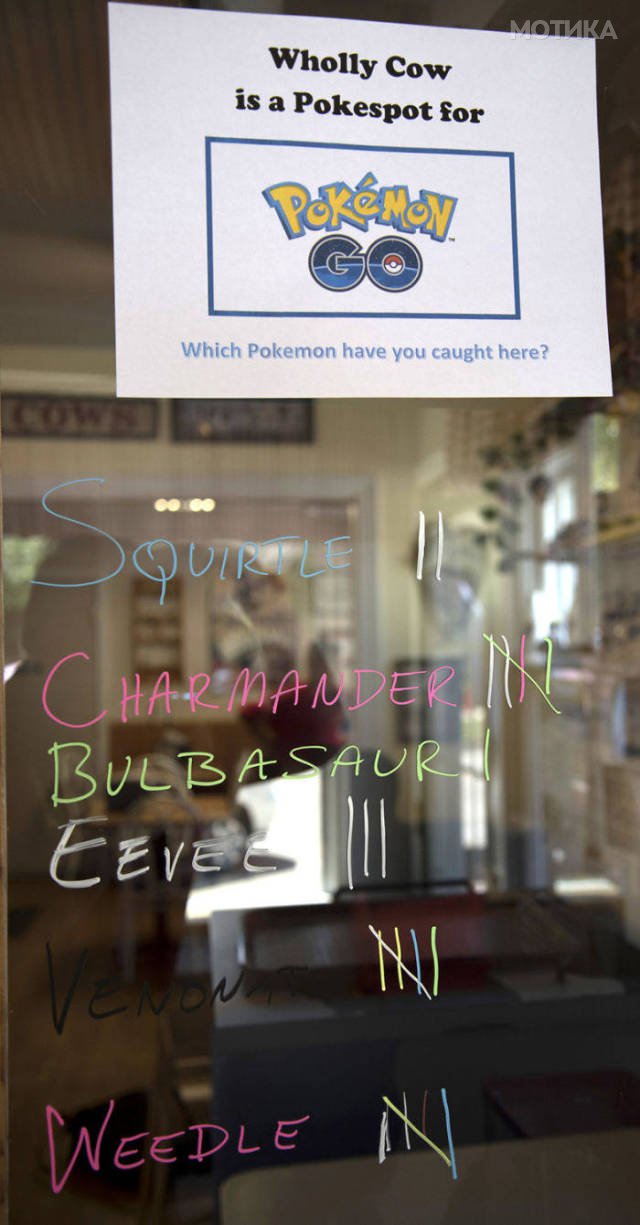 МОТИКА
Wholly Cow
is a Pokespot for
POKéMON
GO
Which Pokemon have you caught here?
COWS
SQUIRTLE
CHARMANDER
BULBASAUR
EEVEE
VENONAT
WEEDLE